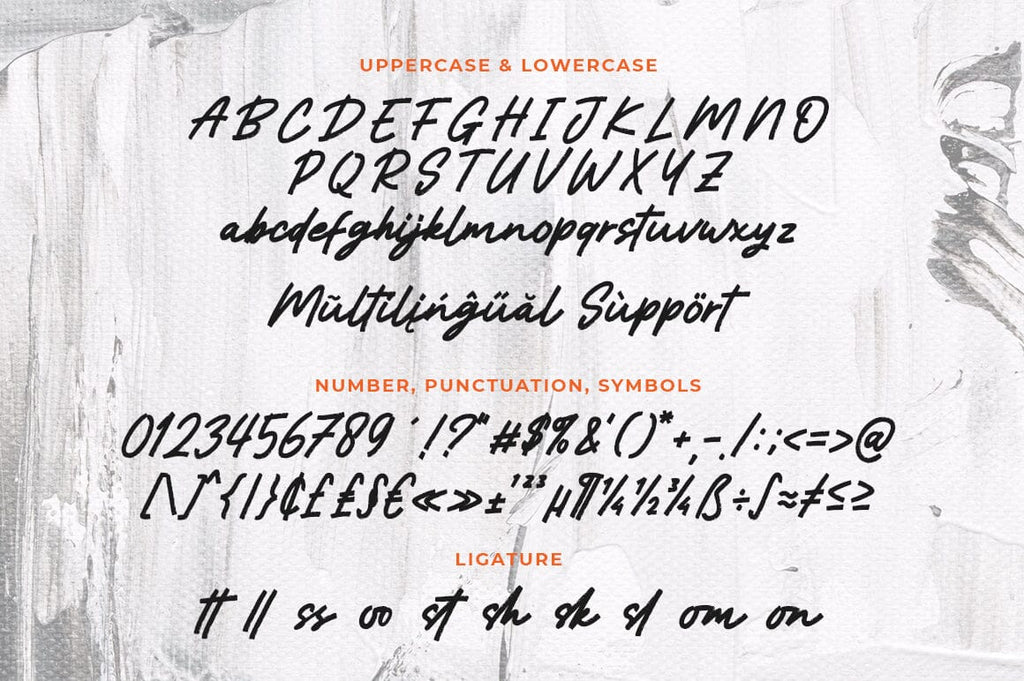 UPPERCASE & LOWERCASE
A B C D E F G H I J K L M N O
P Q R S T U V W X Y Z
abcdefghijklmnopqrstuvwxyz
Mŭltilįńĝűăl Sùppört
NUMBER, PUNCTUATION, SYMBOLS
0123456789 ˙ !?"#$%&'()*+,-./:;<=>@
[\]^{|}¢£₤§€«»±¹²³µ¶¼½¾ß÷∫≈≠≤≥
LIGATURE
tt ll ss oo st sh sk sl om on